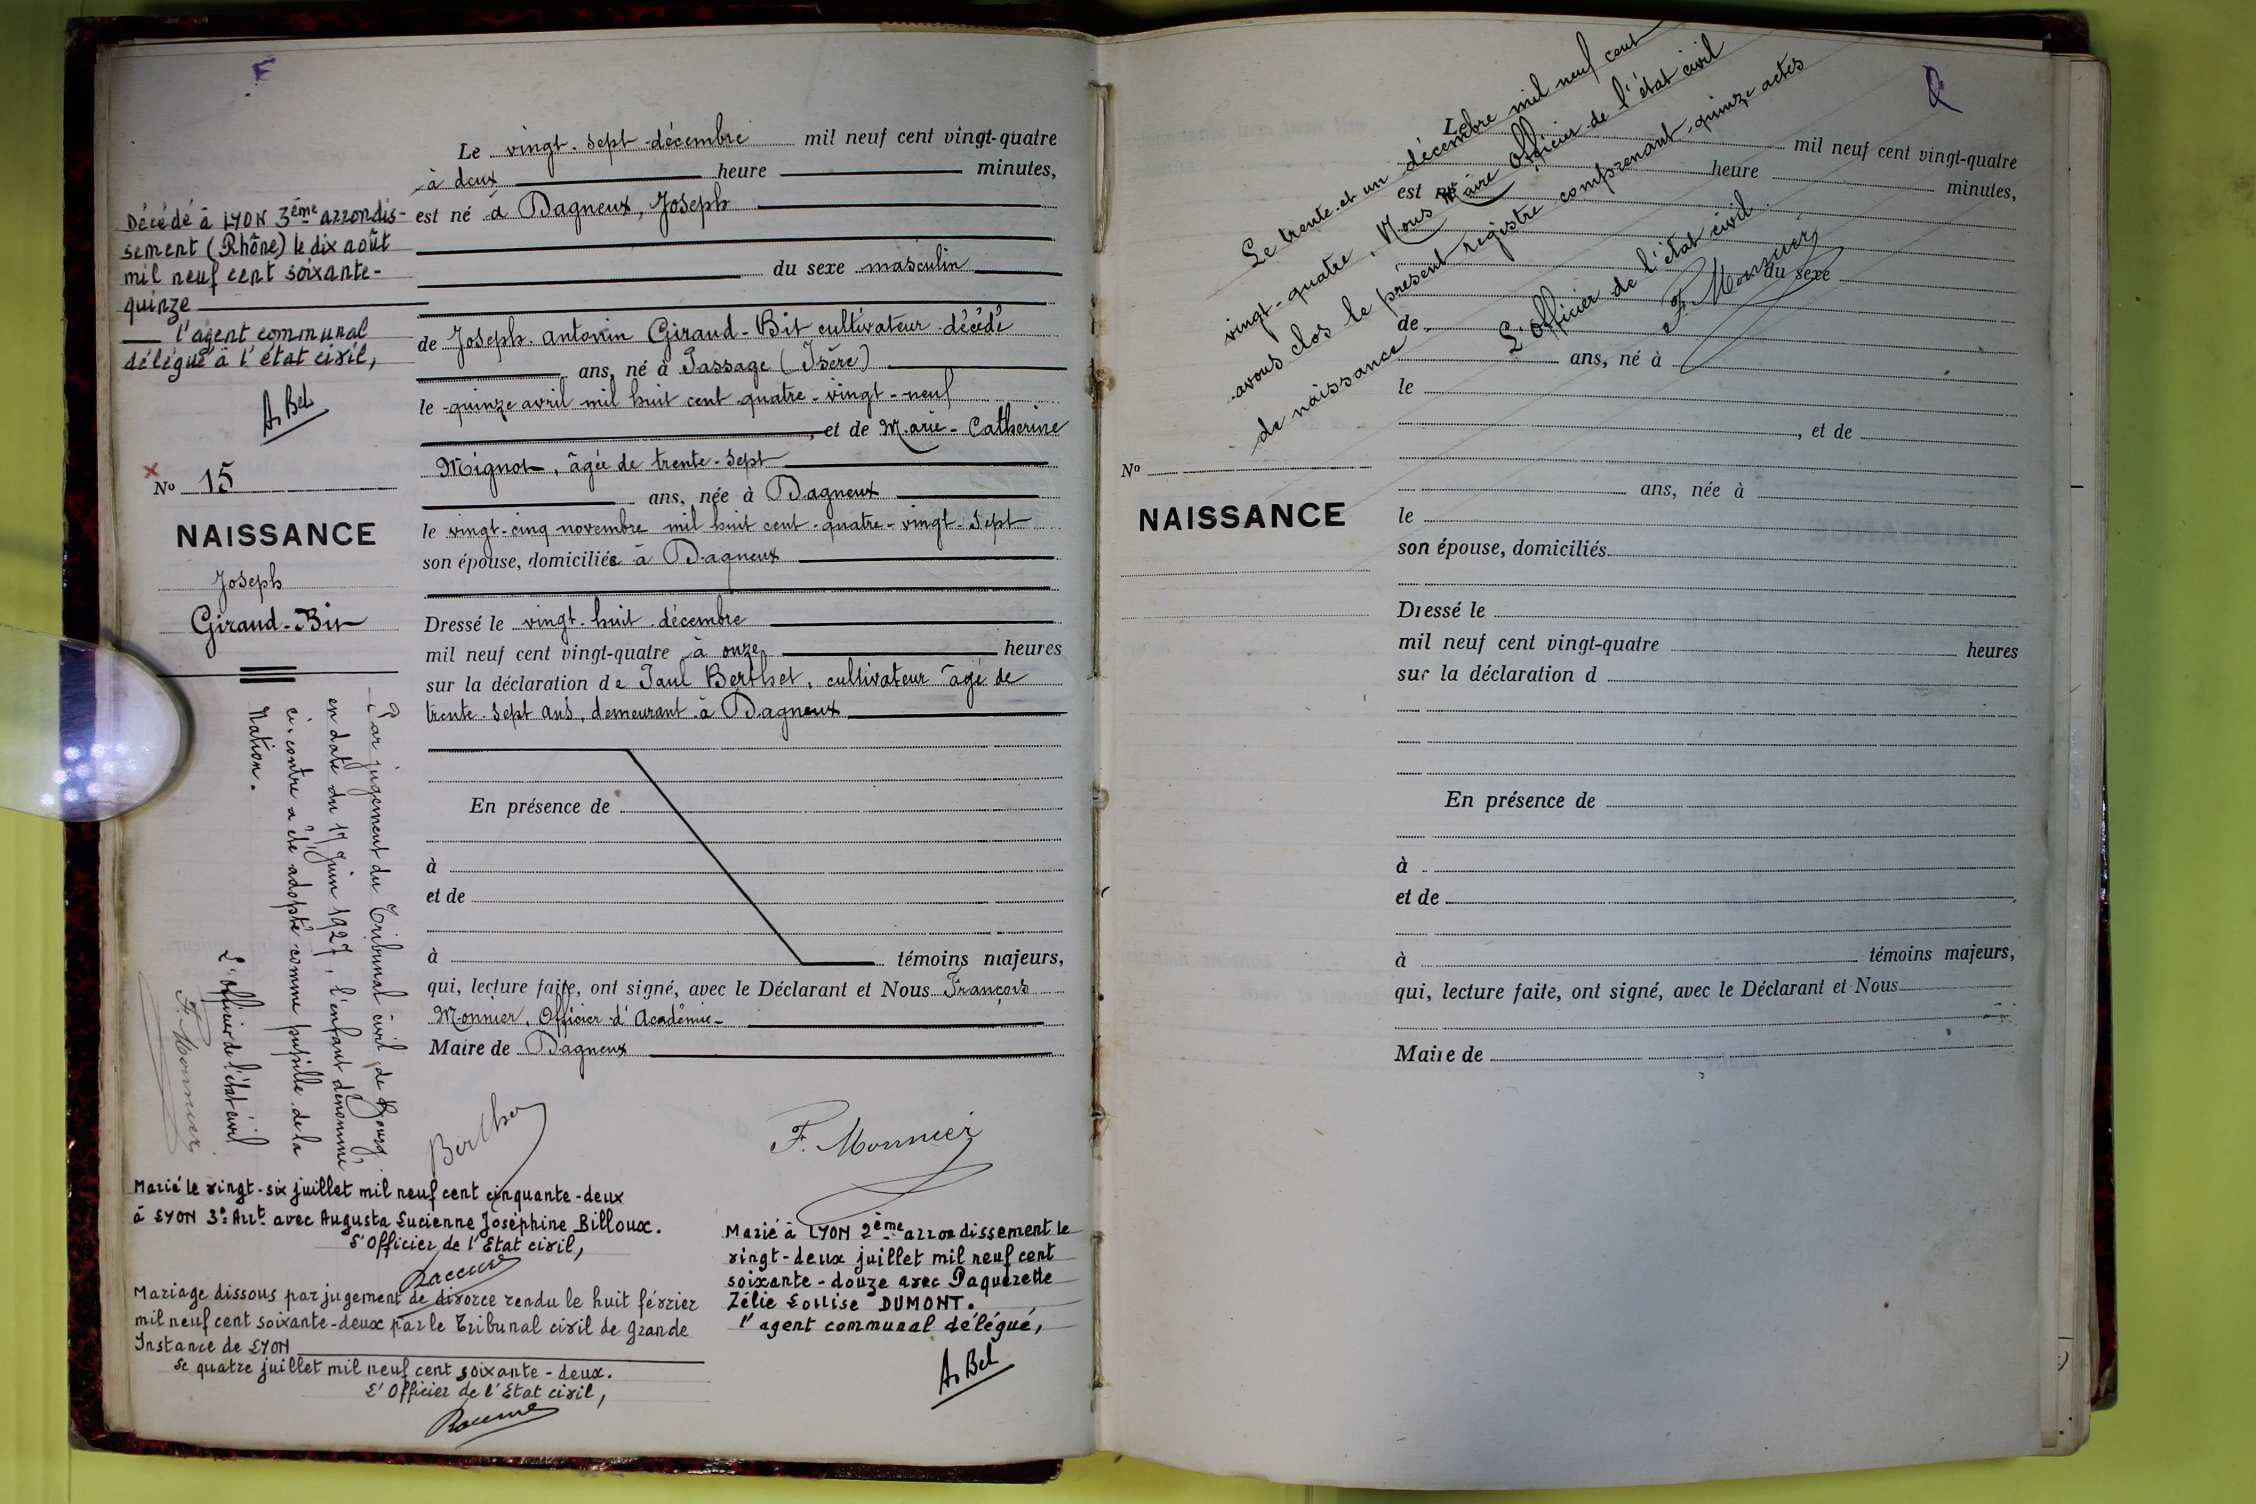 Le vingt-sept décembre mil neuf cent vingt-quatre
à deux heure minutes,
est né à Dagneux, Joseph
du sexe masculin
de Joseph Antonin Giraud-Bit cultivateur décédé
ans, né à Passage (Isère)
le quinze avril mil huit cent quatre-vingt-neuf
, et de Marie-Catherine
Mignot, âgée de trente-sept
ans, née à Dagneux
le vingt-cinq novembre mil huit cent quatre-vingt-sept
son épouse, domiciliée à Dagneux
Dressé le vingt-huit décembre
mil neuf cent vingt-quatre à onze heures
sur la déclaration de Paul Berthet, cultivateur âgé de
trente-sept ans, demeurant à Dagneux
En présence de
à
et de
à témoins majeurs,
qui, lecture faite, ont signé, avec le Déclarant et Nous François
Monnier, Officier d'Académie
Maire de Dagneux
F. Monnier
Décédé à LYON 3ème arrondis-
sement (Rhône) le dix août
mil neuf cent soixante-
quinze
l'agent communal
délégué à l'état civil,
A. Bel
No 15
NAISSANCE
Joseph
Giraud-Bit
Par jugement du Tribunal civil de Bourg
en date du 17 Juin 1927, l'enfant dénommé
ci-contre a été adopté comme pupille de la
Nation.
L'officier de l'état civil
F. Monnier
Marié le vingt-six juillet mil neuf cent cinquante-deux
à LYON 3e Arrt avec Augusta Lucienne Joséphine Billoux.
L'Officier de l'Etat civil,
Mariage dissous par jugement de divorce rendu le huit février
mil neuf cent soixante-deux par le Tribunal civil de Grande
Instance de LYON
Le quatre juillet mil neuf cent soixante-deux.
L'Officier de l'Etat civil,
Marié à LYON 2ème arrondissement le
vingt-deux juillet mil neuf cent
soixante-douze avec Paquerette
Zélie Louise DUMONT.
l'agent communal délégué,
A. Bel
Le trente et un décembre mil neuf cent
vingt-quatre, Nous Maire Officier de l'état civil
avons clos le présent registre comprenant quinze actes
de naissance
L'Officier de l'état civil
F. Monnier
Le mil neuf cent vingt-quatre
heure minutes,
est
du sexe
de
ans, né à
le
, et de
ans, née à
le
son épouse, domiciliés
Dressé le
mil neuf cent vingt-quatre heures
sur la déclaration d
En présence de
à
et de
à témoins majeurs,
qui, lecture faite, ont signé, avec le Déclarant et Nous
Maire de
No
NAISSANCE